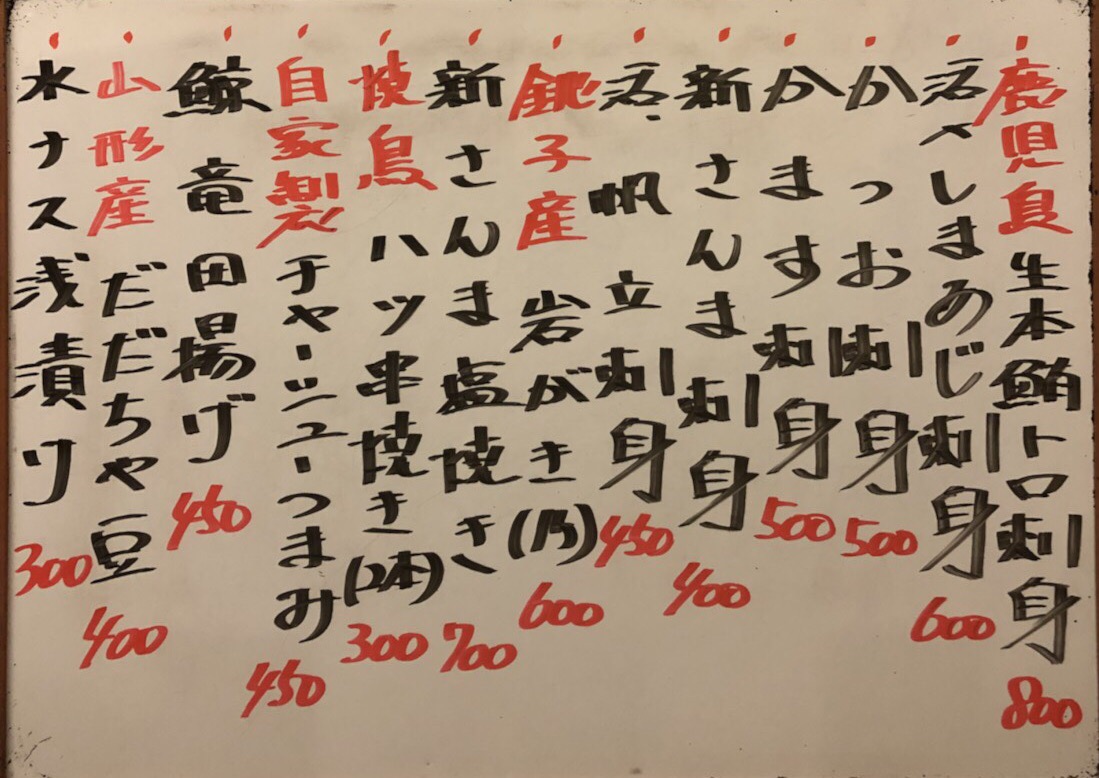 鹿児島生本鮪トロ刺身 800
活〆しまあじ刺身 600
かつお刺身 500
かます刺身 500
新さんま刺身 400
活帆立刺身 450
銚子産岩がき 600
新さんま塩焼き 700
焼鳥ハツ串焼き(2本) 300
自家製チャーシューつまみ 450
鯨竜田揚げ 450
山形産だだちゃ豆 400
水ナス浅漬け 300